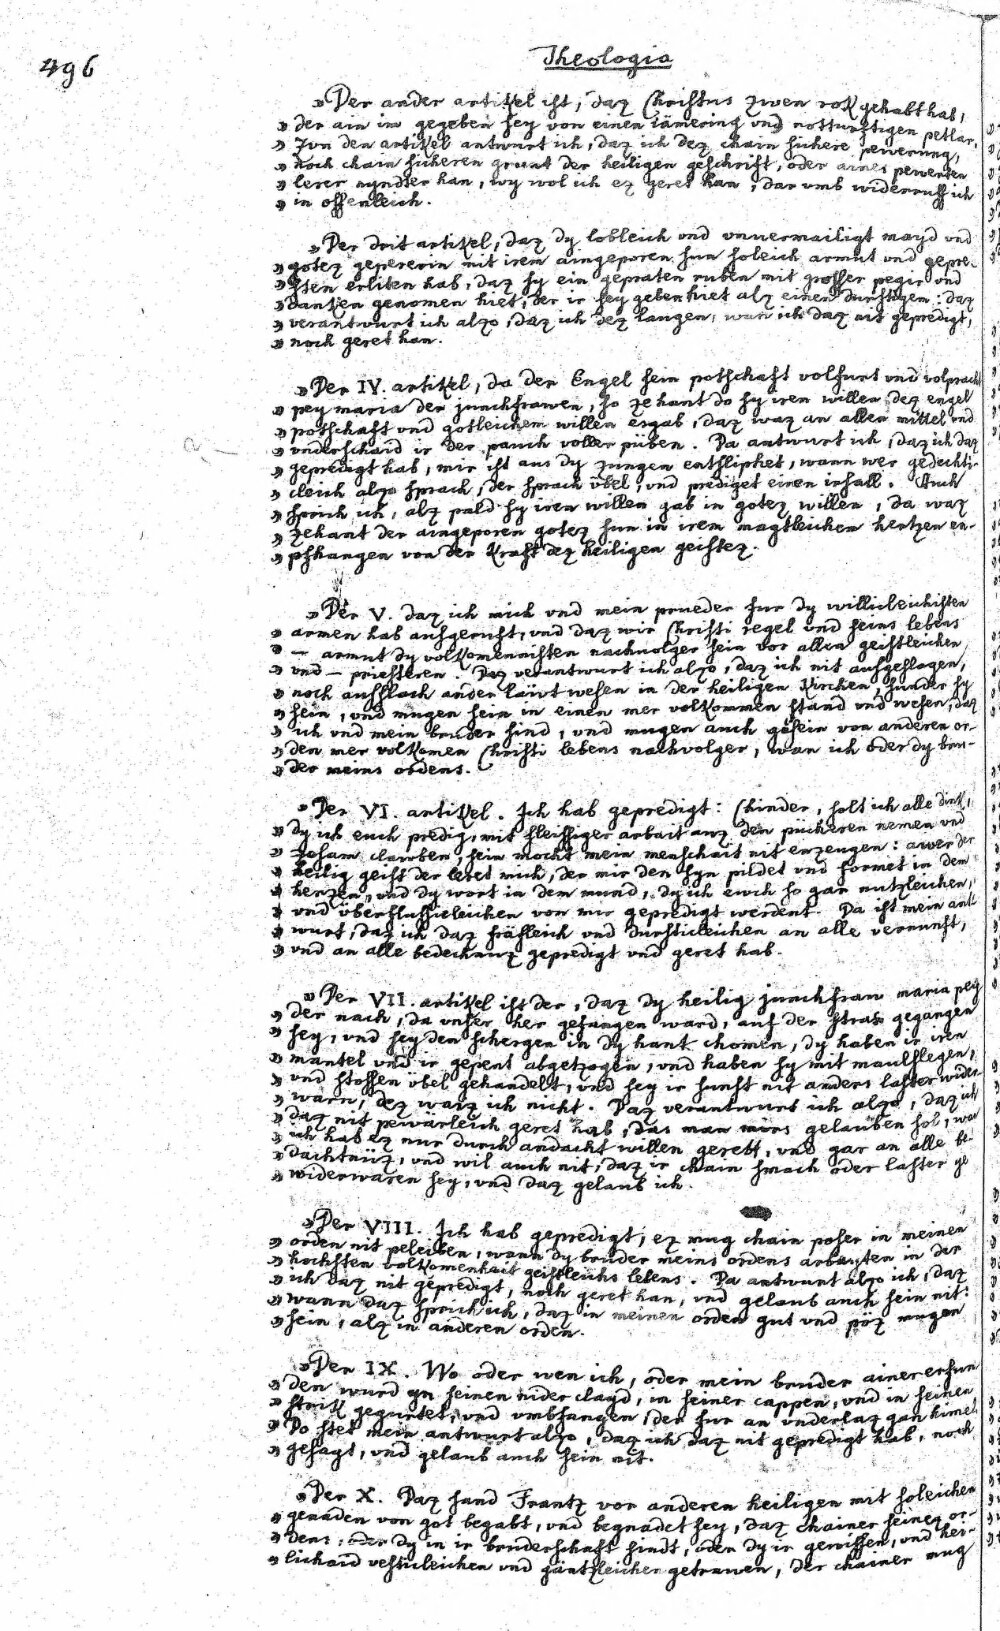 496
Theologia
» Der ander artikel ist, daz Christus zwen rok gehabt hab,
» der ain im gegeben sey von einen iämering vnd notturftigen petlar.
» Zvn den artikel antwurt ich, daz ich dez chain sichere pewerung,
» noch chain sicheren grunt der heiligen geschrift, oder aines pewerten
» lerer nyndter han, wy wol ich ez geret han, dar vmb widerruff ich
» in offenleich.
» Der drit artikel, daz dy lobleich vnd vnuermailigt mayd vnd
» gotez gepererin mit irem aingeporen sun soleich armut vnd gepre-
» sten erliten hab, daz sy ein gepraten ruben mit grosser pegir vnd
» danken genomen hiet, der ir sey geben hiet alz einen durftigen: daz
» verantwurt ich alzo, daz ich dez laugen, wan ich daz nit gepredigt,
» noch geret han.
» Der IV. artikel, da der Engel sein potschaft volfurt vnd volpracht
» pey maria der junchfrawen, so zehant do sy iren willen dez engel
» potschaft vnd gotleichem willen ergab, daz waz an allen mittel vnd
» vnderschaid ir der pauch voller püben. Da antwurt ich, daz ich daz
» gepredigt hab, mir ist aus dy zungen entsliphet, wann wer gedechti-
» cleich alzo sprach, der sprach übel, vnd prediget einen irsall. Auch
» sprich ich, alz pald sy iren willen gab in gotez willen, da waz
» zehant der aingeporen gotez sun in irem magtleichem hertzen en-
» pfhangen von der kraft dez heiligen geistez.
» Der V. daz ich mich vnd mein prueder fur dy willicleichisten
» armen hab aufgeruft, vnd daz wir Christi regel vnd seins lebens
» — armut dy volkomenisten nachuolger sein vor allen geistleichen
» vnd — priesteren. Daz verantwurt ich alzo, daz ich nit aufgeslagen,
» noch aufslach ander lairt wesen in der heiligen kirchen, sunder sy
» sein, vnd mugen sein in einen mer volkommen stand vnd wesen, daz
» ich vnd mein bruder sind, vnd mugen auch gösein von anderen or-
» den mer volkomen Christi lebens nachvolger, wan ich oder dy bru-
» der meins ordens.
» Der VI. artikel. Ich hab gepredigt: Chinder, solt ich alle dink,
» dy ich euch predig, mit fleissiger arbait auz den pücheren nemen vnd
» zesam clawben, sein mocht mein menschait nit erzeugen: awer der
» heilig geist der leret mich, der mir den syn pildet vnd formet in dem
» herzen, vnd dy wort in dem mund, dy ich ewch so gar nutzleichen,
» vnd überflussicleichen von mir gepredigt werdent. Da ist mein ant-
» wurt, daz ich daz fräfleich vnd dursticleichen an alle vernunft,
» vnd an alle bedechnuz gepredigt vnd geret hab.
» Der VII. artikel ist der, daz dy heilig junchfraw maria pey
» der nach, da vnser her gefangen ward, auf der strass gegangen
» sey, vnd sey den schergen in dy hant chomen, dy haben ir iren
» mantel vnd ir gepent abgezogen, vnd haben sy mit maulslegen,
» vnd stossen übel gehandelt, vnd sey ir sunst nit anders laster wider-
» warn, dez waiz ich nicht. Daz verantwurt ich alzo, daz ich
» daz nit pewärleich geret hab, das man mirs gelauben sol, wan
» ich hab ez nur durch andacht willen gerett, vnd gar an alle be-
» dachtnüz, vnd wil auch nit, daz ir chain smach oder laster ge
» widerwaren sey, vnd daz gelaub ich.
» Der VIII. Ich hab gepredigt, ez mug chain poser in meinen
» orden nit peleiben, wann dy bruder meins ordens arbayten in der
» hochsten volkomenhait geistleichs lebens. Da antwurt alzo ich, daz
» ich daz nit gepredigt, noch geret han, vnd gelaub auch sein nit:
» wann daz sprich ich, daz in meinen orden gut vnd pöz mugen
» sein, alz in anderen orden.
» Der IX. Wo oder wen ich, oder mein bruder ainer erfun
» den wurd yn seinen nider clayd, in seiner cappen, vnd in seinen
» strik gegurtet, vnd vmbfangen, der fur an vnderlaz gan himel.
» Do stet mein antwurt alzo, daz ich daz nit gepredigt hab, noch
» gesagt, vnd gelaub auch sein nit.
» Der X. Daz sand Frantz vor anderen heiligen mit soleichen
» genaden von got begabt, vnd begnadet sey, daz chainer seinez or-
» dens, oder dy in ir bruderschaft sindt, oder dy ir gewissen, vnd hei-
» lichaid vesticleichen vnd gäntzleichen getrawen, der chainer mug